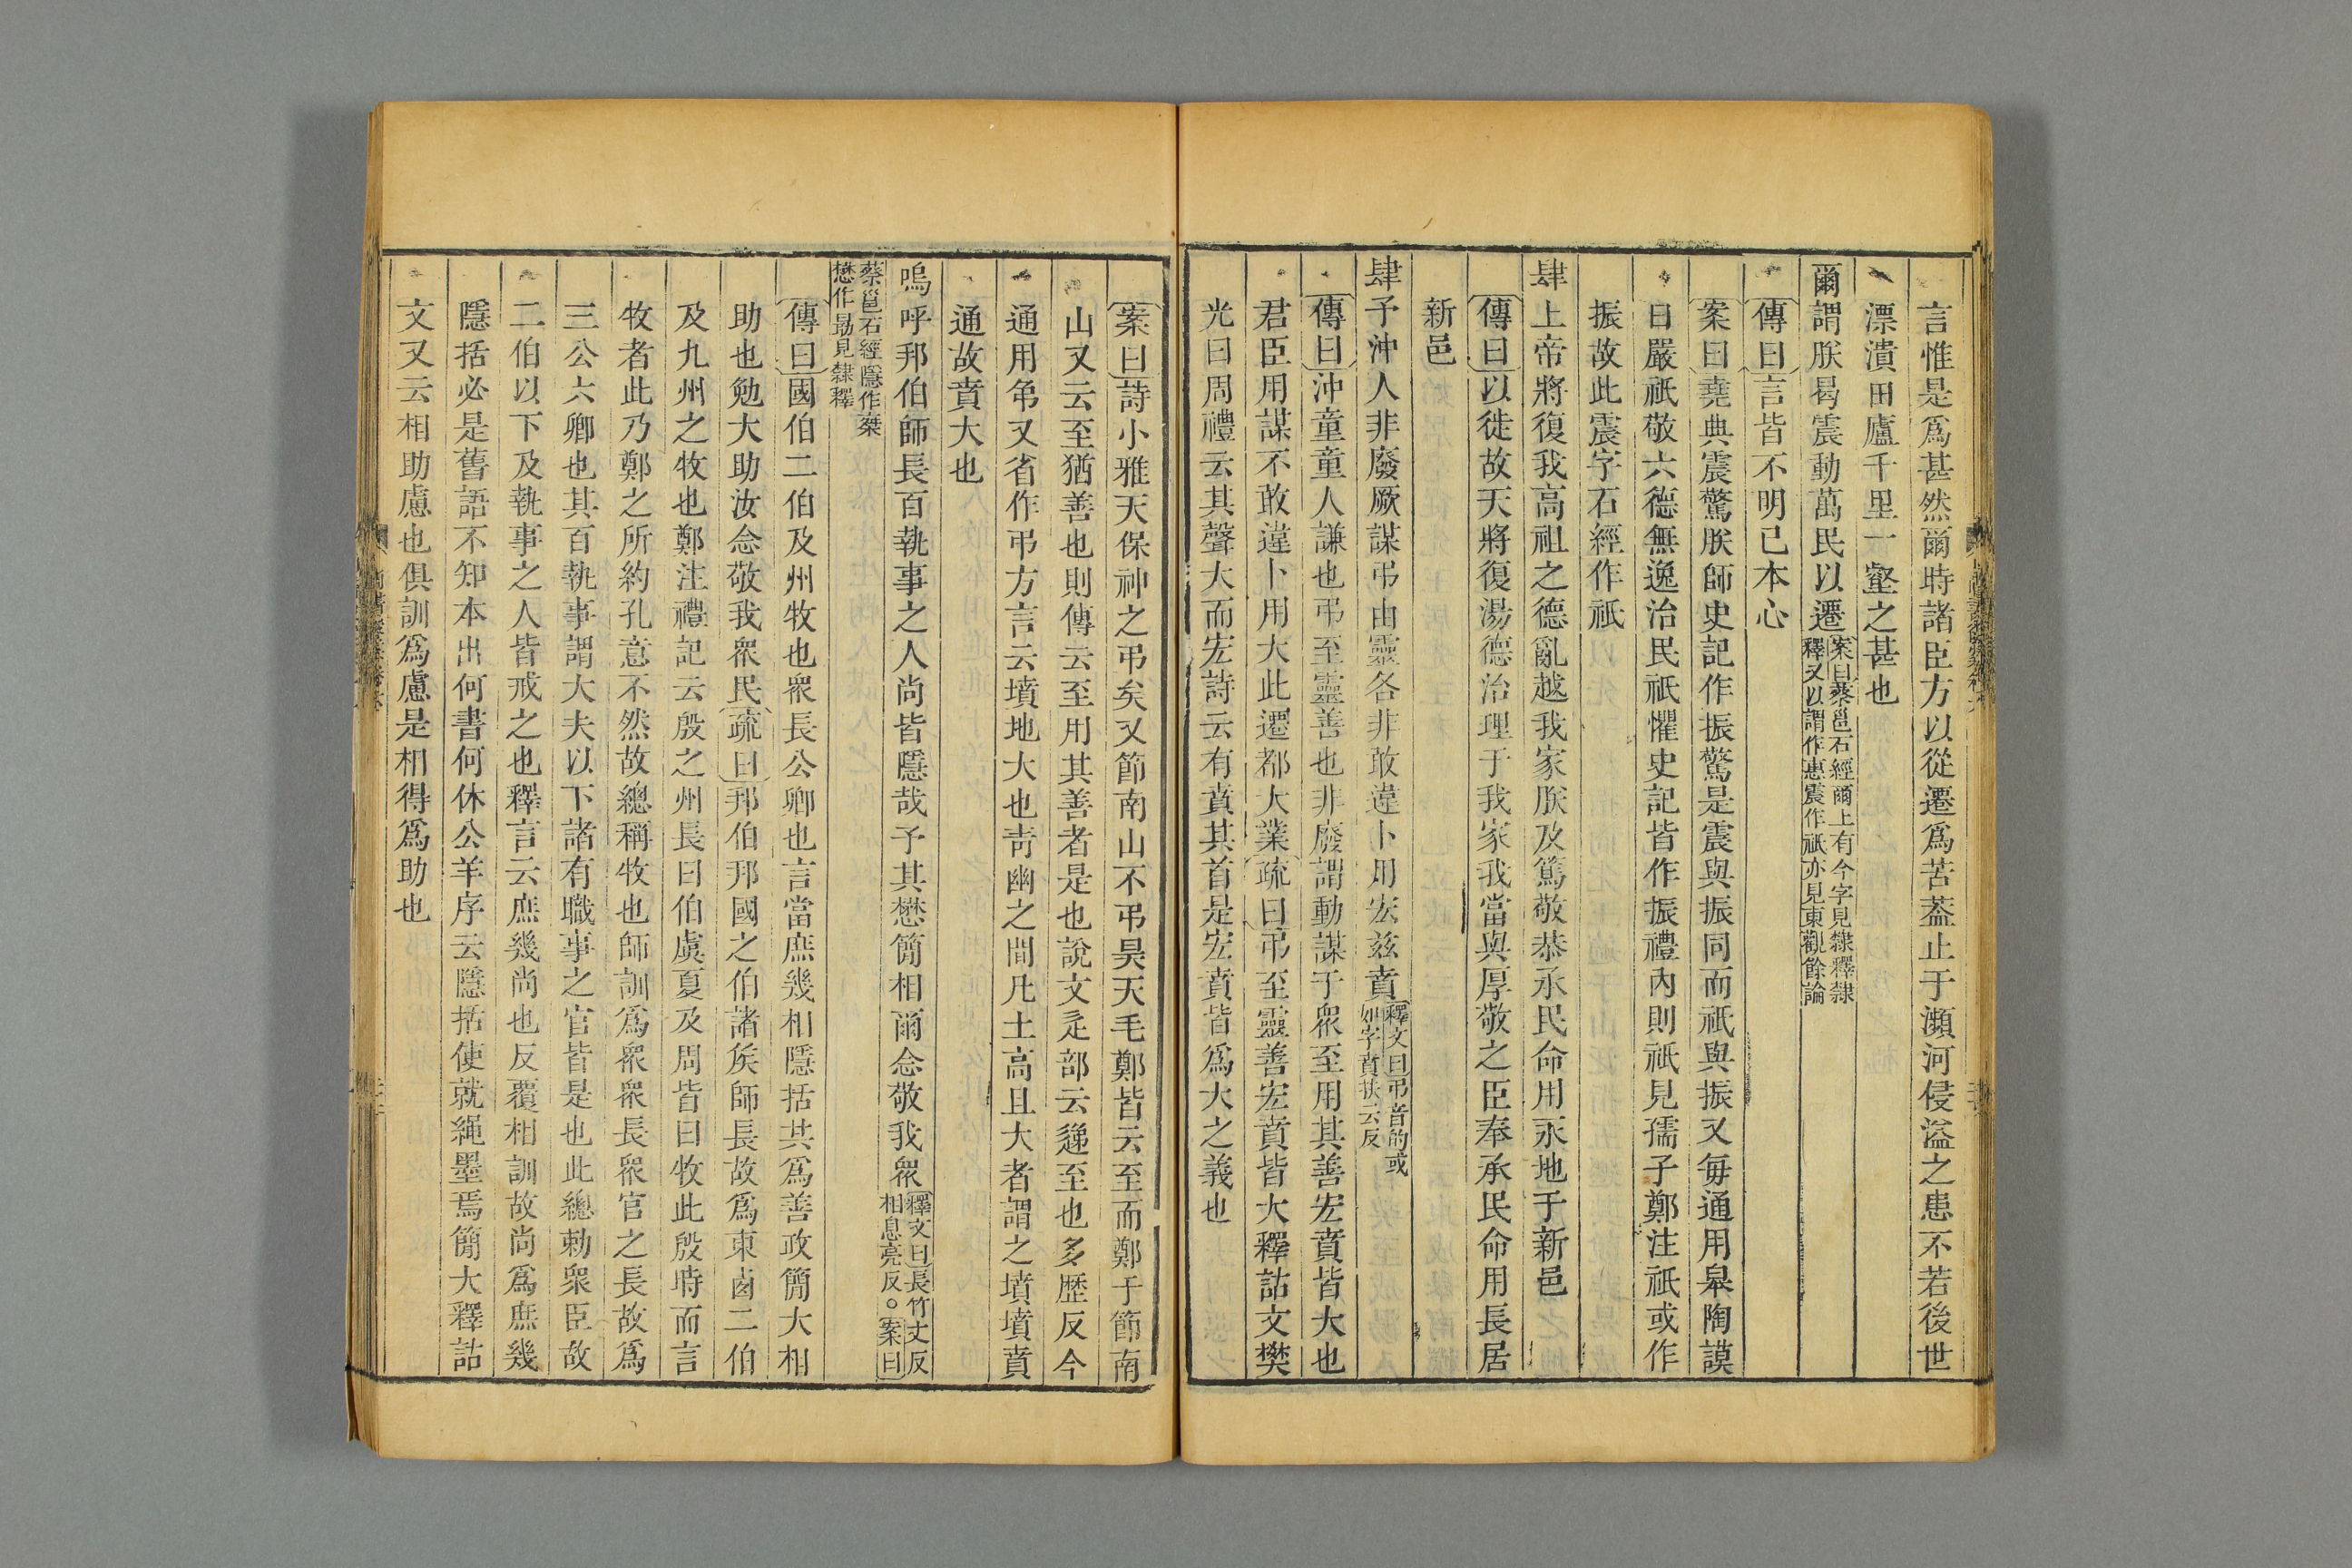 言惟是爲甚然爾時諸臣方以從遷爲苦葢止于瀕河侵溢之患不若後世
漂潰田廬千里一壑之甚也
爾謂朕曷震動萬民以遷案曰蔡邕石經爾上有今字見隸釋隸
釋又以謂作惠震作祇亦見東觀餘論
傳曰言皆不明已本心
案曰堯典震驚朕師史記作振驚是震與振同而祇與振又每通用皋陶謨
日嚴祇敬六德無逸治民祇懼史記皆作振禮內則祇見孺子鄭注祇或作
振故此震字石經作祇
肆上帝將復我高祖之德亂越我家朕及篤敬恭承民命用永地于新邑
傳曰以徙故天將復湯德治理于我家我當與厚敬之臣奉承民命用長居
新邑
肆予沖人非廢厥謀弔由靈各非敢違卜用宏兹賁釋文曰弔音的或
如字賁扶云反
傳曰沖童童人謙也弔至靈善也非廢謂動謀于衆至用其善宏賁皆大也
君臣用謀不敢違卜用大此遷都大業疏曰弔至靈善宏賁皆大釋詁文樊
光曰周禮云其聲大而宏詩云有賁其首是宏賁皆爲大之義也
案曰詩小雅天保神之弔矣又節南山不弔昊天毛鄭皆云至而鄭于節南
山又云至猶善也則傳云至用其善者是也說文辵部云遞至也多歷反今
通用弔又省作弔方言云墳地大也靑幽之間凡土高且大者謂之墳墳賁
通故賁大也
嗚呼邦伯師長百執事之人尚皆隱哉予其懋簡相爾念敬我衆釋文曰長竹丈反
相息亮反○案曰
蔡邕石經隱作椉
懋作勗見隸釋
傳曰國伯二伯及州牧也衆長公卿也言當庶幾相隱括共爲善政簡大相
助也勉大助汝念敬我衆民疏曰邦伯邦國之伯諸矦師長故爲東西二伯
及九州之牧也鄭注禮記云殷之州長曰伯虞夏及周皆曰牧此殷時而言
牧者此乃鄭之所約孔意不然故總稱牧也師訓爲衆衆長衆官之長故爲
三公六卿也其百執事謂大夫以下諸有職事之官皆是也此總勑衆臣故
二伯以下及執事之人皆戒之也釋言云庶幾尚也反覆相訓故尚爲庶幾
隱括必是舊語不知本出何書何休公羊序云隱括使就繩墨焉簡大釋詁
文又云相助慮也俱訓爲慮是相得爲助也